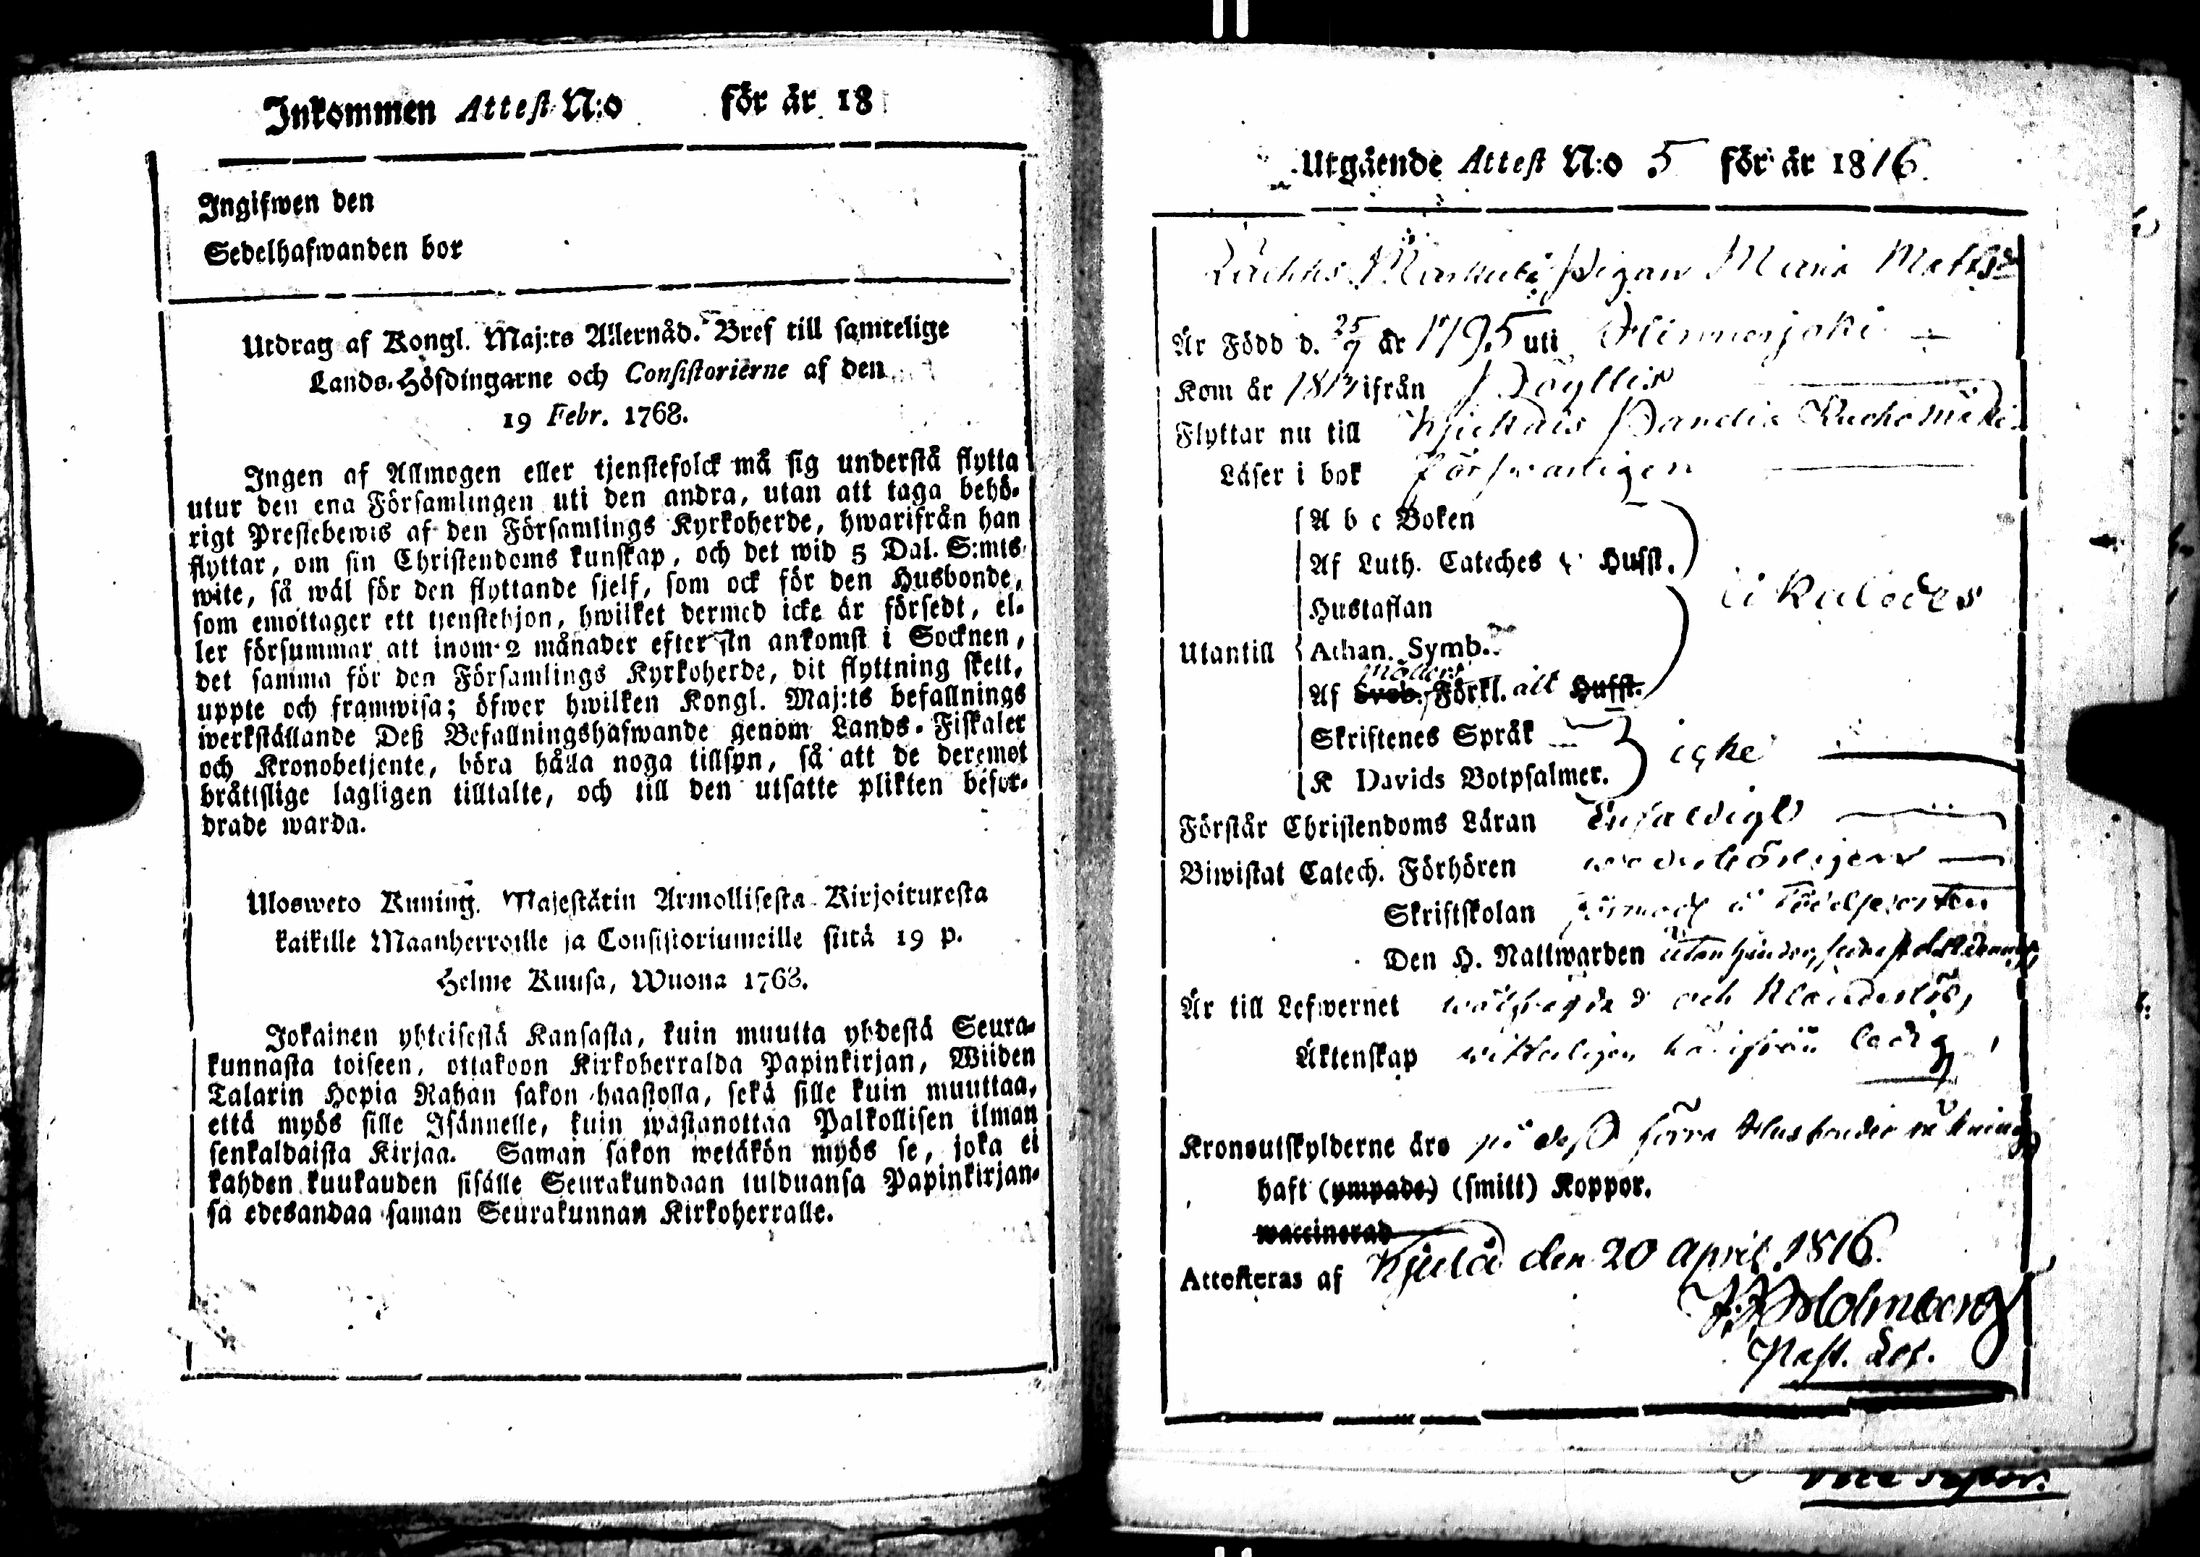 Inkommen Attest N:o för år 18
Ingifwen den
Sedelhafwanden bor
Utdrag af Kongl. Maj:ts Allernåd. Bref till samtelige
Lands-Höfdingarne och Consistorierne af den
19 Febr. 1768.
Ingen af Allmogen eller tjenstefolck må sig understå flytta
utur den ena Församlingen uti den andra, utan att taga behö-
rigt Prestebewis af den Församlings Kyrkoherde, hwarifrån han
flyttar, om sin Christendoms kunskap, och det wid 5 Dal. S:mts
wite, så wäl för den flyttande sjelf, som ock för den Husbonde,
som emottager ett tjenstehjon, hwilket dermed icke är försedt, el-
ler försummar att inom 2 månader efter sin ankomst i Socknen,
det samma för den Församlings Kyrkoherde, dit flyttning skett,
uppte och framwisa; öfwer hwilken Kongl. Maj:ts befallnings
werkställande Deß Befallningshafwande genom Lands-Fiskaler
och Kronobetjente, böra hålla noga tillsyn, så att de deremot
bråttslige lagligen tilltalte, och till den utsatte plikten befor-
drade warda.
Ulosweto Kuning. Majestätin Armollisesta Kirjoituxesta
kaikille Maanherroille ja Consistoriumeille siitä 19 p.
Helme Kuusa, Wuona 1768.
Jokainen yhteisestä Kansasta, kuin muutta yhdestä Seura-
kunnasta toiseen, ottakoon Kirkoherralda Papinkirjan, Wiiden
Talarin Hopia Rahan sakon haastolla, sekä sille kuin muuttaa,
että myös sille Isännelle, kuin wastanottaa Palkollisen ilman
senkaldaista Kirjaa. Saman sakon wetäkön myös se, joka ei
kahden kuukauden sisälle Seurakundaan tulduansa Papinkirjan-
sa edesandaa saman Seurakunnan Kirkoherralle.
Utgående Attest N:o 5 för år 1816
Pigan Maria Matsd
Är Född d. 25/9 år 1795 uti Hinnerjoki
Kom år ifrån Pöyttis
Flyttar nu till
Läser i bok försvarligen
A b c Boken
Af Luth. Cateches Husst.
Hustaflan likaledes
Utantill Athan. Symb.
Af Sveb. Förkl. alt Husst.
Skriftenes Språk icke
K Davids Botpsalmer.
Förstår Christendoms Läran Enfaldigt
Biwistat Catech. Förhören wederbörligen
Skriftskolan
Den H. Nattwarden
Är till Lefwernet wälfrägdad och
Äktenskap witterligen härifrån ledig
Kronoutskylderne äro på deß förra Husbondes räkning
haft (ympade) (smitt) Koppor.
waccinerad
Attesteras af Kjulo den 20 April 1816.
Holmberg
Past.